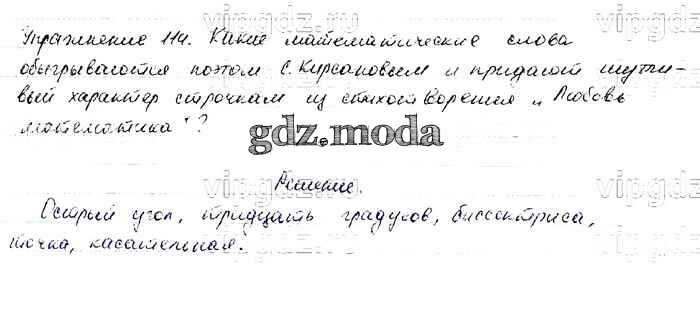 vipgdz.ru vipgdz.ru vipgdz.ru
Упражнение 114. Какие математические слова
обыгрываются поэтом С. Кирсановым и придают шутли-
вый характер строчкам из стихотворения „Любовь
математика"?
gdz.moda
vipgdz.ru vipgdz.ru vipgdz.ru
Решение.
Острый угол, тридцать градусов, биссектриса,
точка, касательная.